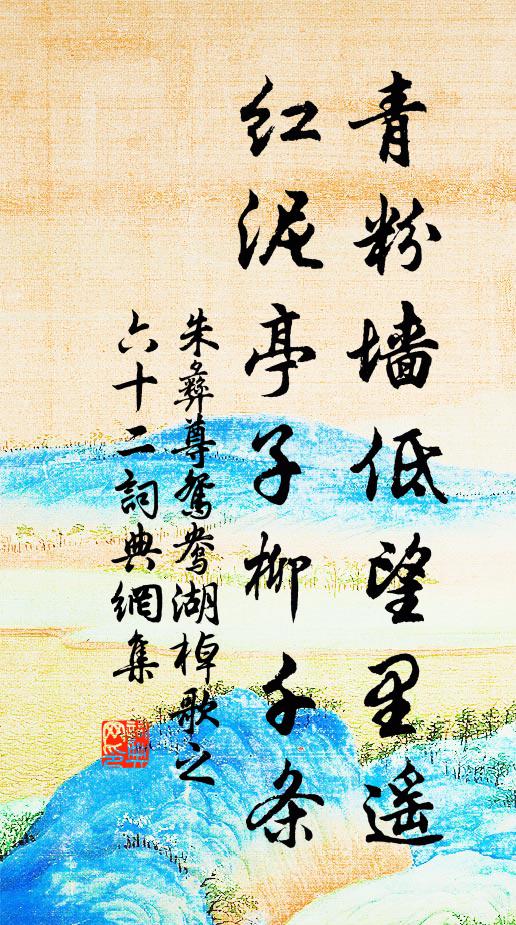 青粉墙低望里遥
红泥亭子柳千条
朱彝尊鸳鸯湖棹歌之
六十二詞典網集